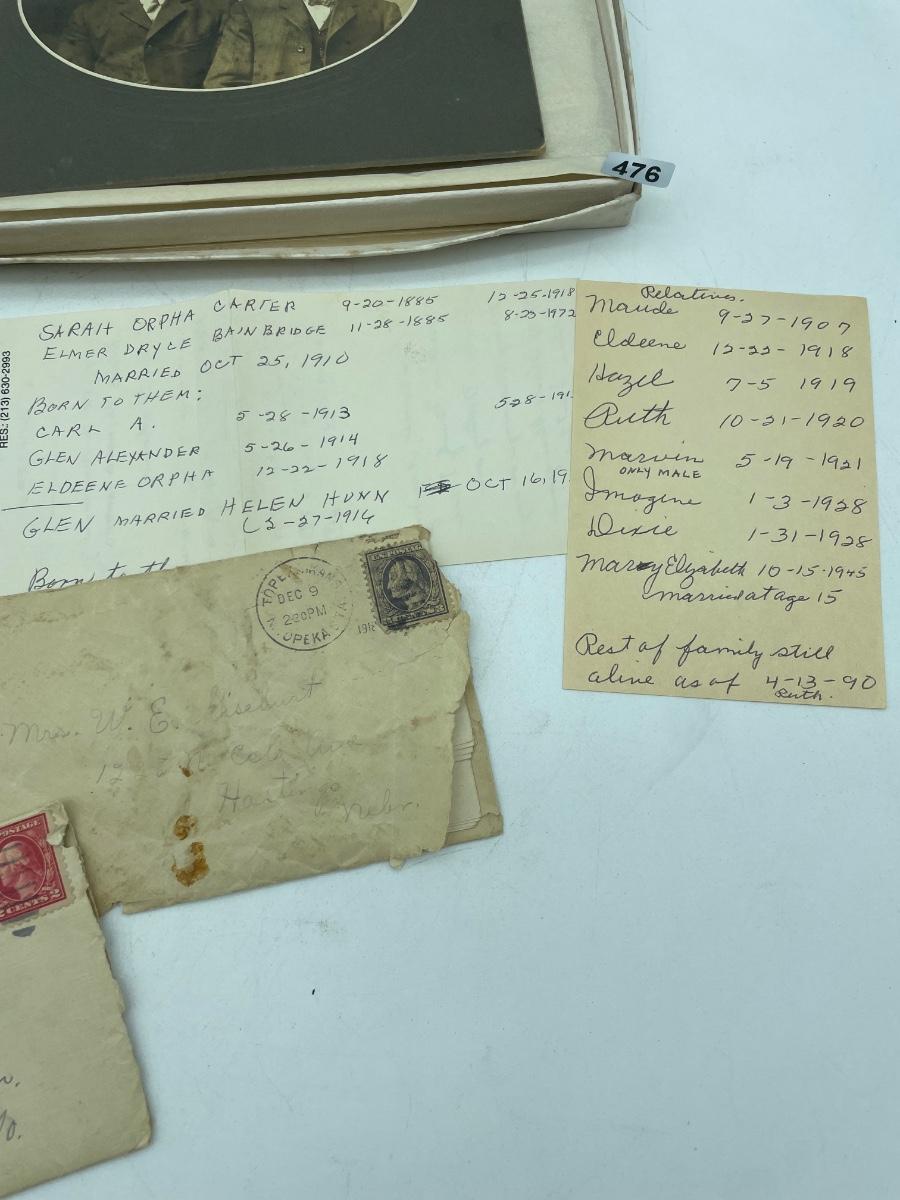 476
RES.: (213) 630-2993
SARAH ORPHA CARTER 9-20-1885 12-25-1918
ELMER DRYCE BAINBRIDGE 11-28-1885 8-20-1972
MARRIED OCT 25, 1910
BORN TO THEM:
CARL A. 5-28-1913 528-191
GLEN ALEXANDER 5-26-1914
ELDEENE ORPHA 12-22-1918
GLEN MARRIED HELEN HUNN OCT 16, 19
2-27-1916
Born to th
Relatives.
Maude 9-27-1907
Eldeene 12-22-1918
Hazel 7-5 1919
Ruth 10-21-1920
Marvin 5-19-1921
ONLY MALE
Imogine 1-3-1928
Dixie 1-31-1928
Mary Elizabeth 10-15-1945
married at age 15
Rest of family still
alive as of 4-13-90
Ruth.
TOPEKA, KANS.
DEC 9
230PM
1918
TOPEKA STA.
U.S. POSTAGE
Mrs. W. E.
Nebr.
POSTAGE
2 CENTS 2
o.